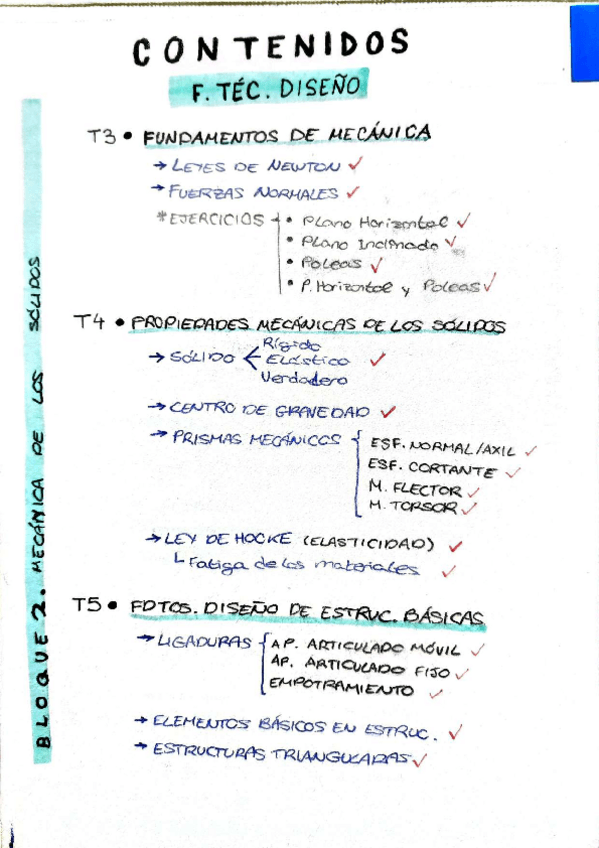 CONTENIDOS
F. TÉC. DISEÑO
BLOQUE 2. MECÁNICA DE LOS SÓLIDOS
T3 • FUNDAMENTOS DE MECÁNICA
→ LEYES DE NEWTON ✓
→ FUERZAS NORMALES ✓
*EJERCICIOS • Plano Horizontal ✓
• Plano Inclinado ✓
• Poleas ✓
• P. Horizontal y Poleas ✓
T4 • PROPIEDADES MECÁNICAS DE LOS SÓLIDOS
→ SÓLIDO Rígido
Elástico ✓
Verdadero
→ CENTRO DE GRAVEDAD ✓
→ PRISMAS MECÁNICOS ESF. NORMAL/AXIL ✓
ESF. CORTANTE ✓
M. FLECTOR ✓
M. TORSOR ✓
→ LEY DE HOCKE (ELASTICIDAD) ✓
Fatiga de los materiales ✓
T5 • FDTOS. DISEÑO DE ESTRUC. BÁSICAS
→ LIGADURAS AP. ARTICULADO MÓVIL ✓
AP. ARTICULADO FIJO ✓
EMPOTRAMIENTO ✓
→ ELEMENTOS BÁSICOS EN ESTRUC. ✓
→ ESTRUCTURAS TRIANGULADAS ✓